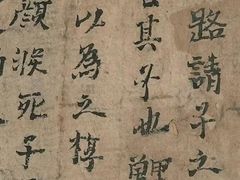 路請子之
其子也鯉
以為之椁
顏淵死子